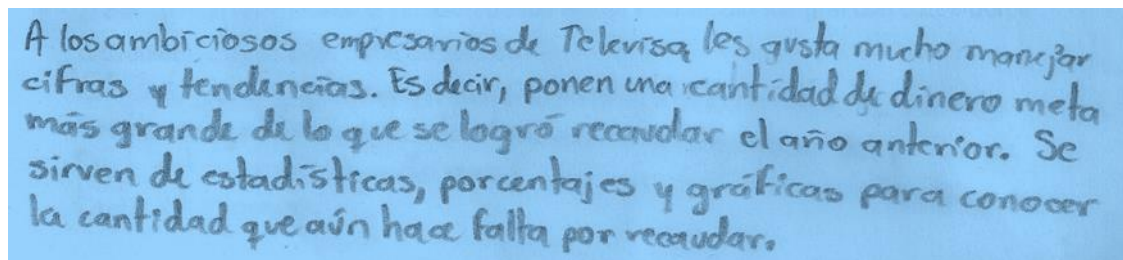 A los ambiciosos empresarios de Televisa les gusta mucho manejar
cifras y tendencias. Es decir, ponen una cantidad de dinero meta
más grande de lo que se logró recaudar el año anterior. Se
sirven de estadísticas, porcentajes y gráficas para conocer
la cantidad que aún hace falta por recaudar.